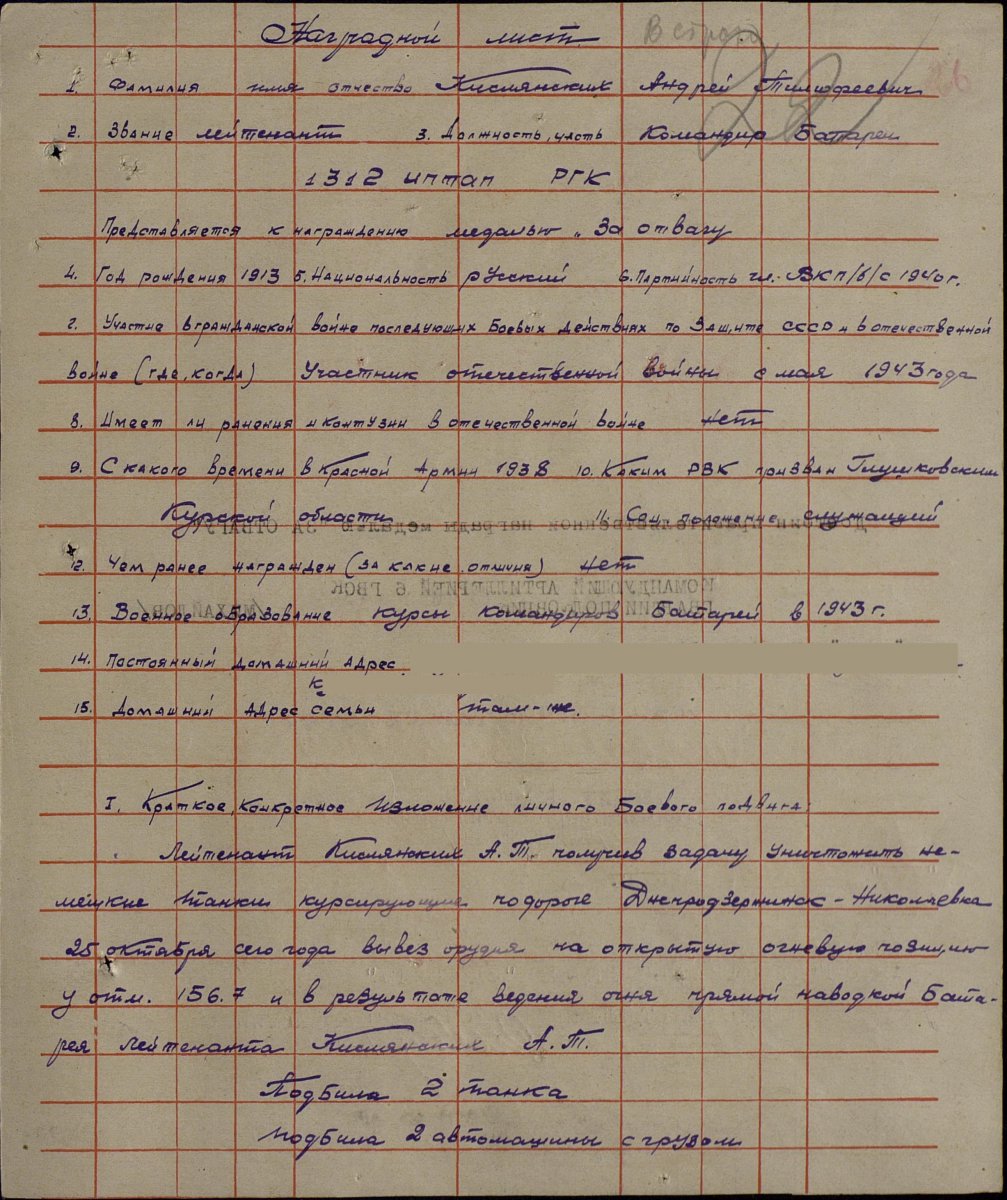 Наградной лист
1. Фамилия имя отчество Кислянских Андрей Тимофеевич
2. Звание лейтенант 3. Должность, часть Командир Батареи
1312 иптап РГК
Представляется к награждению медалью „За отвагу
4. Год рождения 1913 5. Национальность русский 6. Партийность чл. ВКП/б/ с 1940 г.
7. Участие в гражданской войне последующих боевых действиях по защите СССР и в отечественной
войне (где, когда) Участник отечественной войны с мая 1943 года
8. Имеет ли ранения и контузии в отечественной войне нет
9. С какого времени в Красной Армии 1938 10. Каким РВК призван Глушковским
Курской области 11. Соц. положение служащий
12. Чем ранее награжден (за какие отличия) нет
13. Военное образование курсы командиров батарей в 1943 г.
14. Постоянный домашний адрес
15. Домашний адрес семьи там-же.
I. Краткое, конкретное изложение личного боевого подвига:
Лейтенант Кислянских А.Т. получив задачу уничтожить не-
мецкие танки курсирующие по дороге Днепродзержинск - Николаевка
25 октября сего года вывез орудия на открытую огневую позицию
у отм. 156.7 и в результате ведения огня прямой наводкой бата-
рея лейтенанта Кислянских А.Т.
Подбила 2 танка
подбила 2 автомашины с грузом